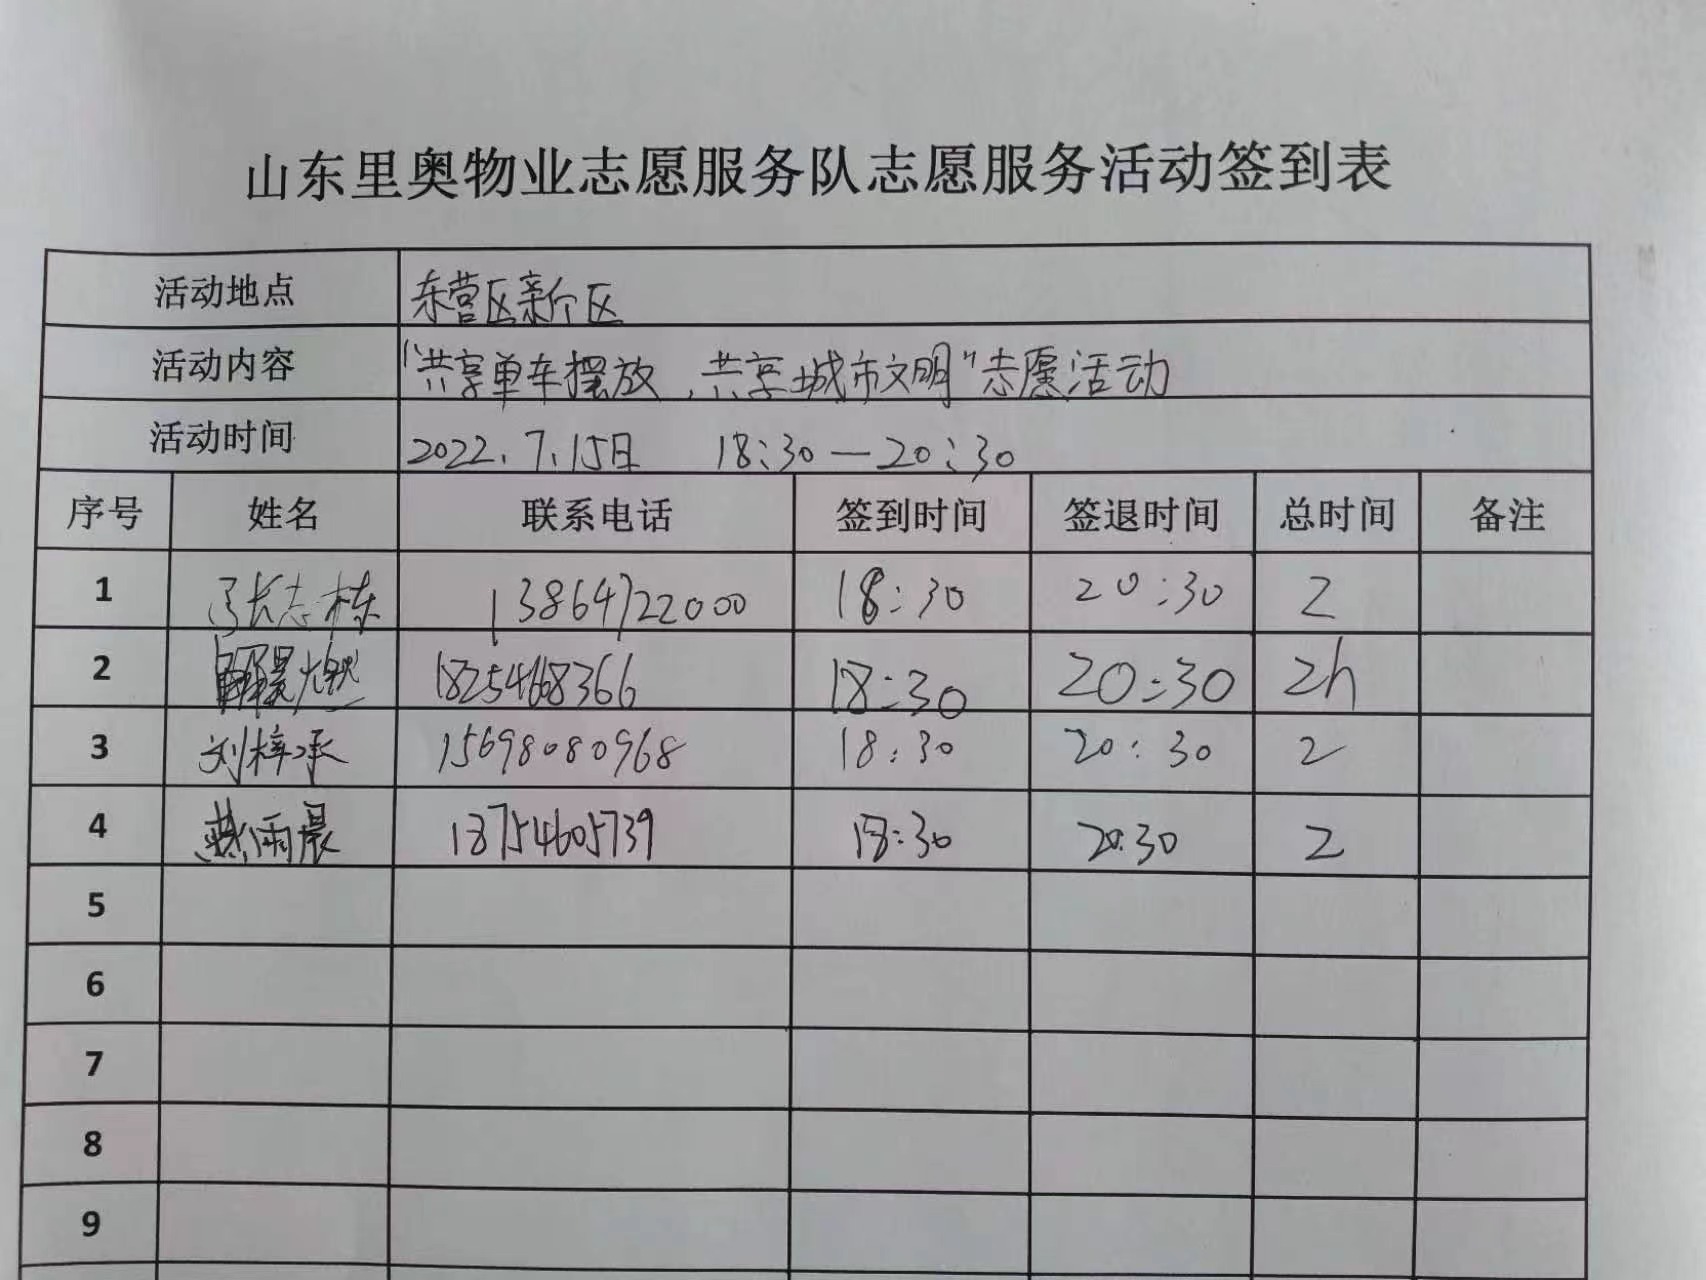 山东里奥物业志愿服务队志愿服务活动签到表
活动地点 东营区新区
活动内容 "共享单车摆放,共享城市文明"志愿活动
活动时间 2022.7.15日 18:30—20:30
序号 姓名 联系电话 签到时间 签退时间 总时间 备注
1 张志栋 13864722000 18:30 20:30 2
2 18254668366 18:30 20:30 2h
3 刘梓承 15698080968 18:30 20:30 2
4 燕雨晨 18754605739 18:30 20:30 2
5
6
7
8
9